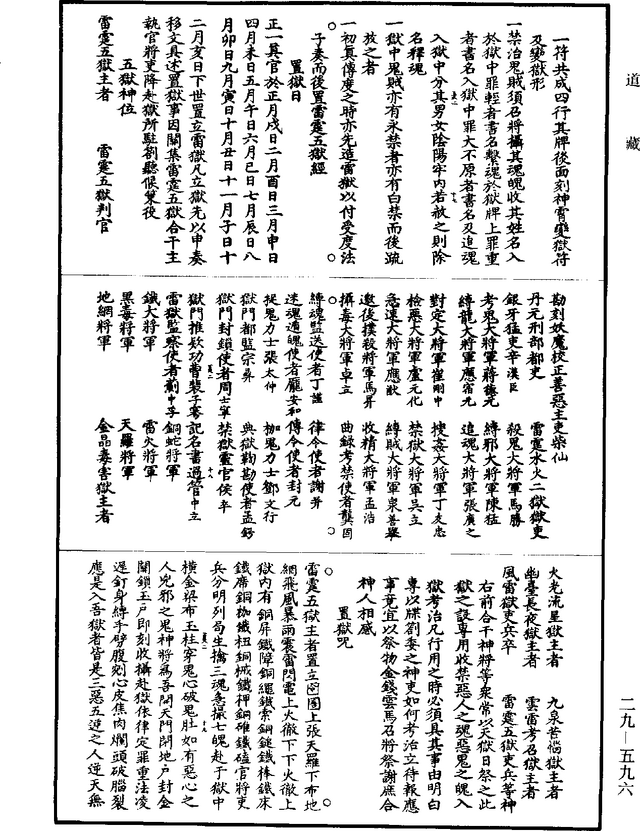 道藏
一符共成四行其牌後面刻神霄變獄符
及變獄形
一禁治鬼賊須召將攝其魂魄收其姓名入
於獄中罪輕者書名繫魂於獄牌上罪重
者書名入獄中罪大不原者書名及追魂
入獄中分其男女陰陽牢內若赦之則除
名釋魂
一獄中鬼賊亦有永禁者亦有白禁而後疏
放之者
一初真傳度之時亦先造雷獄以付受度法
子奏而後置雷霆五獄經
置獄日
正一真官於正月戌日二月酉日三月申日
四月未日五月午日六月巳日七月辰日八
月卯日九月寅日十月丑日十一月子日十
二月亥日下世置立雷獄凡立獄先以申奏
移文具述置獄事因關集雷霆五獄合干主
執官將吏降赴獄所駐劄聽候策役
五獄神位
雷霆五獄主者 雷霆五獄判官
勘刻妖魔校正善惡主吏柴仙
丹元刑部都吏 雷霆水火二獄獄吏
銀牙猛吏辛漢臣 殺鬼大將軍馬勝
考鬼大將軍蔣德元 縛邪大將軍陳猛
縛龍大將軍應宿元 追魂大將軍張廣之
對定大將軍崔剛中 捜姦大將軍丁友忠
檢惡大將軍盧元化 禁獄大將軍吳立
急速大將軍應猷 縛賊大將軍梁善舉
邀後撲殺將軍馬昇 收精大將軍孟浩
攝毒大將軍卓立 曲錄考禁使者龔固
縛魂監送使者丁謹 律令使者謝昇
迷魂遁魄使者龐安和 傳令使者封元
捉鬼力士張太仲 枷鬼力士鄧文行
獄門都監宗彝 典獄鞫勘使者孟鍔
獄門封鎖使者周士寧 禁獄靈官侯平
獄門推欵功曹裴子騫 記名書過管中立
雷獄監察使者劉中孚 銅蛇將軍
鐵犬將軍 雷火將軍
黑毒將軍 天羅將軍
地網將軍 金晶毒害獄主者
火光流星獄主者 九泉苦惱獄主者
幽臺長夜獄主者 雲雷考召獄主者
風雷獄吏兵卒 雷霆五獄吏兵等神
右前合干神將等衆常以天獄日祭之此
獄之設專用收禁惡人之魂惡鬼之魄入
獄考治凡行用之時必須具其事由明白
專以牒劄委之神吏如何考治立待報應
事竟宜以祭物金錢雲馬召將祭謝庶合
神人相感
置獄咒
雷霆五獄主者置立密圄上張天羅下布地
網飛風暴雨震雷閃電上火徹下下火徹上
獄內有銅屏鐵障銅繩鐵索銅鎚鐵棒鐵床
鐵席銅枷鐵杻銅械鐵押銅碓鐵磕官將吏
兵分明列局生擒三魂急攝七魄赴于獄中
橫金梁布玉柱穿鬼心破鬼肚如有惡心之
人兇邪之鬼神將爲吾開天門閉地戶封金
關鎖玉戶即刻收攝赴獄依律定罪重法凌
遲釘身縛手劈腹剜心皮焦肉爛頭破腦裂
應是入吾獄者皆是三惡五逆之人逆天無
二九—五九六